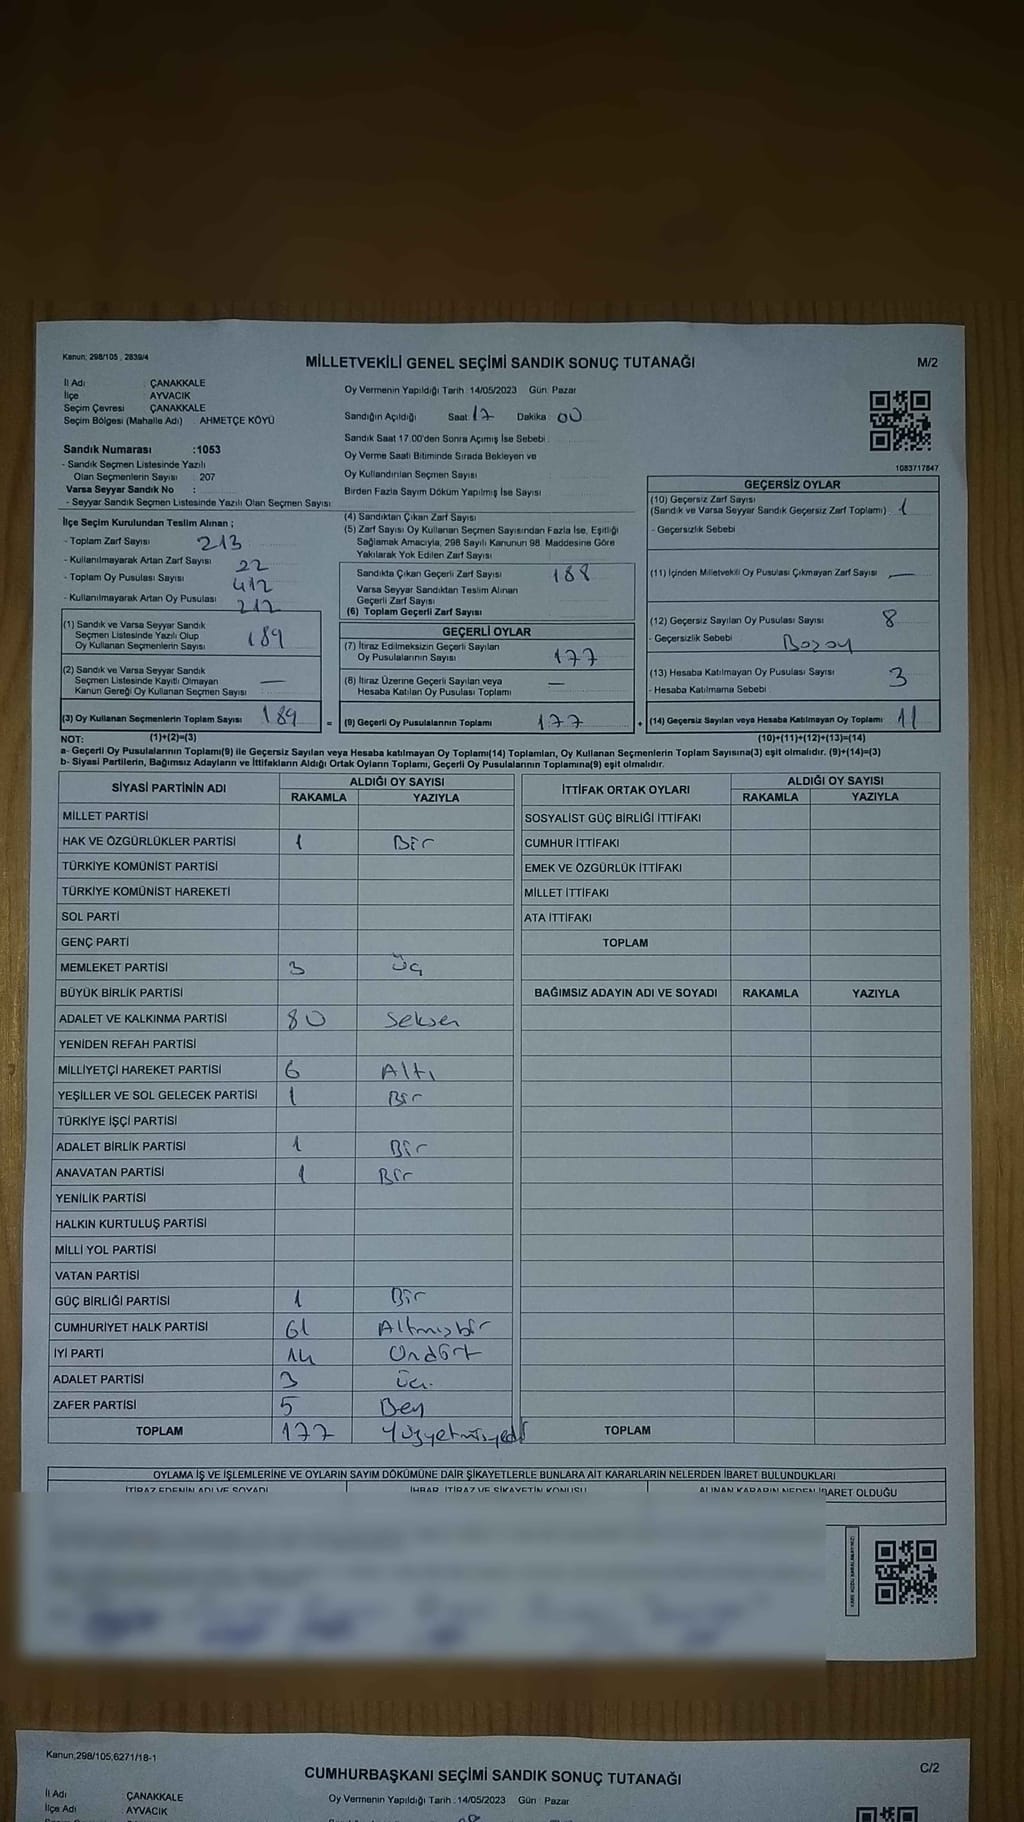 Kanun, 298/105 , 2839/4
MİLLETVEKİLİ GENEL SEÇİMİ SANDIK SONUÇ TUTANAĞI
M/2
İl Adı : ÇANAKKALE
İlçe AYVACIK
Seçim Çevresi : ÇANAKKALE
Seçim Bölgesi (Mahalle Adı) AHMETÇE KÖYÜ
Oy Vermenin Yapıldığı Tarih :14/05/2023 Gün: Pazar
Sandığın Açıldığı Saat: 17 Dakika : 00
Sandık Saat 17.00'den Sonra Açımış İse Sebebi :
Oy Verme Saati Bitiminde Sırada Bekleyen ve
Oy Kullandırılan Seçmen Sayısı
Birden Fazla Sayım Döküm Yapılmış İse Sayısı
Sandık Numarası :1053
- Sandık Seçmen Listesinde Yazılı
Olan Seçmenlerin Sayısı : 207
Varsa Seyyar Sandık No :
- Seyyar Sandık Seçmen Listesinde Yazılı Olan Seçmen Sayısı
1083717847
İlçe Seçim Kurulundan Teslim Alınan ;
- Toplam Zarf Sayısı 213
- Kullanılmayarak Artan Zarf Sayısı 22
- Toplam Oy Pusulası Sayısı 412
- Kullanılmayarak Artan Oy Pusulası 212
(1) Sandık ve Varsa Seyyar Sandık
Seçmen Listesinde Yazılı Olup
Oy Kullanan Seçmenlerin Sayısı 189
(2) Sandık ve Varsa Seyyar Sandık
Seçmen Listesinde Kayıtlı Olmayan
Kanun Gereği Oy Kullanan Seçmen Sayısı —
(3) Oy Kullanan Seçmenlerin Toplam Sayısı 189 =
(4) Sandıktan Çıkan Zarf Sayısı
(5) Zarf Sayısı Oy Kullanan Seçmen Sayısından Fazla İse, Eşitliği
Sağlamak Amacıyla, 298 Sayılı Kanunun 98. Maddesine Göre
Yakılarak Yok Edilen Zarf Sayısı
Sandıkta Çıkan Geçerli Zarf Sayısı 188
Varsa Seyyar Sandıktan Teslim Alınan
Geçerli Zarf Sayısı
(6) Toplam Geçerli Zarf Sayısı
GEÇERLİ OYLAR
(7) İtiraz Edilmeksizin Geçerli Sayılan
Oy Pusulalarının Sayısı 177
(8) İtiraz Üzerine Geçerli Sayılan veya
Hesaba Katılan Oy Pusulası Toplamı —
(9) Geçerli Oy Pusulalarının Toplamı 177 +
GEÇERSİZ OYLAR
(10) Geçersiz Zarf Sayısı
(Sandık ve Varsa Seyyar Sandık Geçersiz Zarf Toplamı) 1
- Geçersizlik Sebebi
(11) İçinden Milletvekili Oy Pusulası Çıkmayan Zarf Sayısı —
(12) Geçersiz Sayılan Oy Pusulası Sayısı 8
- Geçersizlik Sebebi
(13) Hesaba Katılmayan Oy Pusulası Sayısı 3
- Hesaba Katılmama Sebebi
(14) Geçersiz Sayılan veya Hesaba Katılmayan Oy Toplamı 11
NOT: (1)+(2)=(3) (10)+(11)+(12)+(13)=(14)
a- Geçerli Oy Pusulalarının Toplamı(9) ile Geçersiz Sayılan veya Hesaba katılmayan Oy Toplamı(14) Toplamları, Oy Kullanan Seçmenlerin Toplam Sayısına(3) eşit olmalıdır. (9)+(14)=(3)
b- Siyasi Partilerin, Bağımsız Adayların ve İttifakların Aldığı Ortak Oyların Toplamı, Geçerli Oy Pusulalarının Toplamına(9) eşit olmalıdır.
SİYASİ PARTİNİN ADI ALDIĞI OY SAYISI
RAKAMLA YAZIYLA
MİLLET PARTİSİ
HAK VE ÖZGÜRLÜKLER PARTİSİ 1 Bir
TÜRKİYE KOMÜNİST PARTİSİ
TÜRKİYE KOMÜNİST HAREKETİ
SOL PARTİ
GENÇ PARTİ
MEMLEKET PARTİSİ 3 Üç
BÜYÜK BİRLİK PARTİSİ
ADALET VE KALKINMA PARTİSİ 80 Seksen
YENİDEN REFAH PARTİSİ
MİLLİYETÇİ HAREKET PARTİSİ 6 Altı
YEŞİLLER VE SOL GELECEK PARTİSİ 1 Bir
TÜRKİYE İŞÇİ PARTİSİ
ADALET BİRLİK PARTİSİ 1 Bir
ANAVATAN PARTİSİ 1 Bir
YENİLİK PARTİSİ
HALKIN KURTULUŞ PARTİSİ
MİLLİ YOL PARTİSİ
VATAN PARTİSİ
GÜÇ BİRLİĞİ PARTİSİ 1 Bir
CUMHURİYET HALK PARTİSİ 61 Altmışbir
İYİ PARTİ 14 Ondört
ADALET PARTİSİ 3 Üç
ZAFER PARTİSİ 5 Beş
TOPLAM 177 Yüzyetmişyedi
İTTİFAK ORTAK OYLARI ALDIĞI OY SAYISI
RAKAMLA YAZIYLA
SOSYALİST GÜÇ BİRLİĞİ İTTİFAKI
CUMHUR İTTİFAKI
EMEK VE ÖZGÜRLÜK İTTİFAKI
MİLLET İTTİFAKI
ATA İTTİFAKI
TOPLAM
BAĞIMSIZ ADAYIN ADI VE SOYADI RAKAMLA YAZIYLA
TOPLAM
OYLAMA İŞ VE İŞLEMLERİNE VE OYLARIN SAYIM DÖKÜMÜNE DAİR ŞİKAYETLERLE BUNLARA AİT KARARLARIN NELERDEN İBARET BULUNDUKLARI
İTİRAZ EDENİN ADI VE SOYADI İHBAR, İTİRAZ VE ŞİKAYETİN KONUSU ALINAN KARARIN NEDEN İBARET OLDUĞU
Kanun,298/105,6271/18-1
CUMHURBAŞKANI SEÇİMİ SANDIK SONUÇ TUTANAĞI
C/2
İl Adı : ÇANAKKALE
İlçe Adı AYVACIK
Oy Vermenin Yapıldığı Tarih :14/05/2023 Gün : Pazar